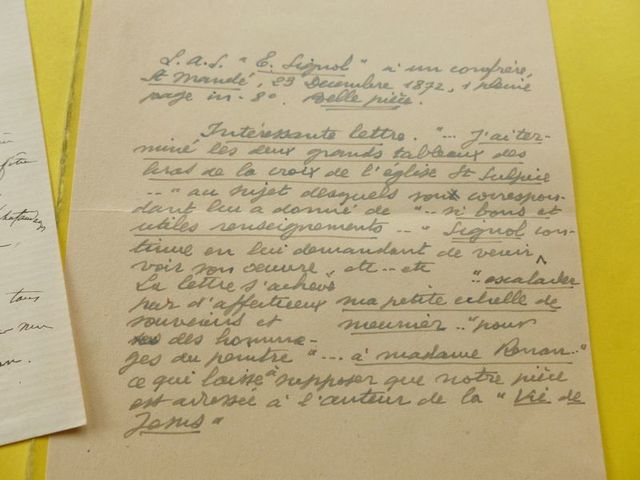 L.A.S. "E. Signol" à un confrère,
St Mandé, 23 Décembre 1872, 1 pleine
page in-8°. Belle pièce.
Intéressante lettre. "... J'ai ter-
miné les deux grands tableaux des
bras de la croix de l'église St Sulpice
..." au sujet desquels son correspon-
dant lui a donné de "... si bons et
utiles renseignements ..." Signol con-
tinue en lui demandant de venir
voir son oeuvre, etc ... etc "escalader
La lettre s'achève
par d'affectueux ma petite echelle de
souvenirs et meunier .." pour
des homma-
ges du peintre "... à madame Renan .."
ce qui laisse supposer que notre pièce
est adressée à l'auteur de la "Vie de
Jesus"
tous